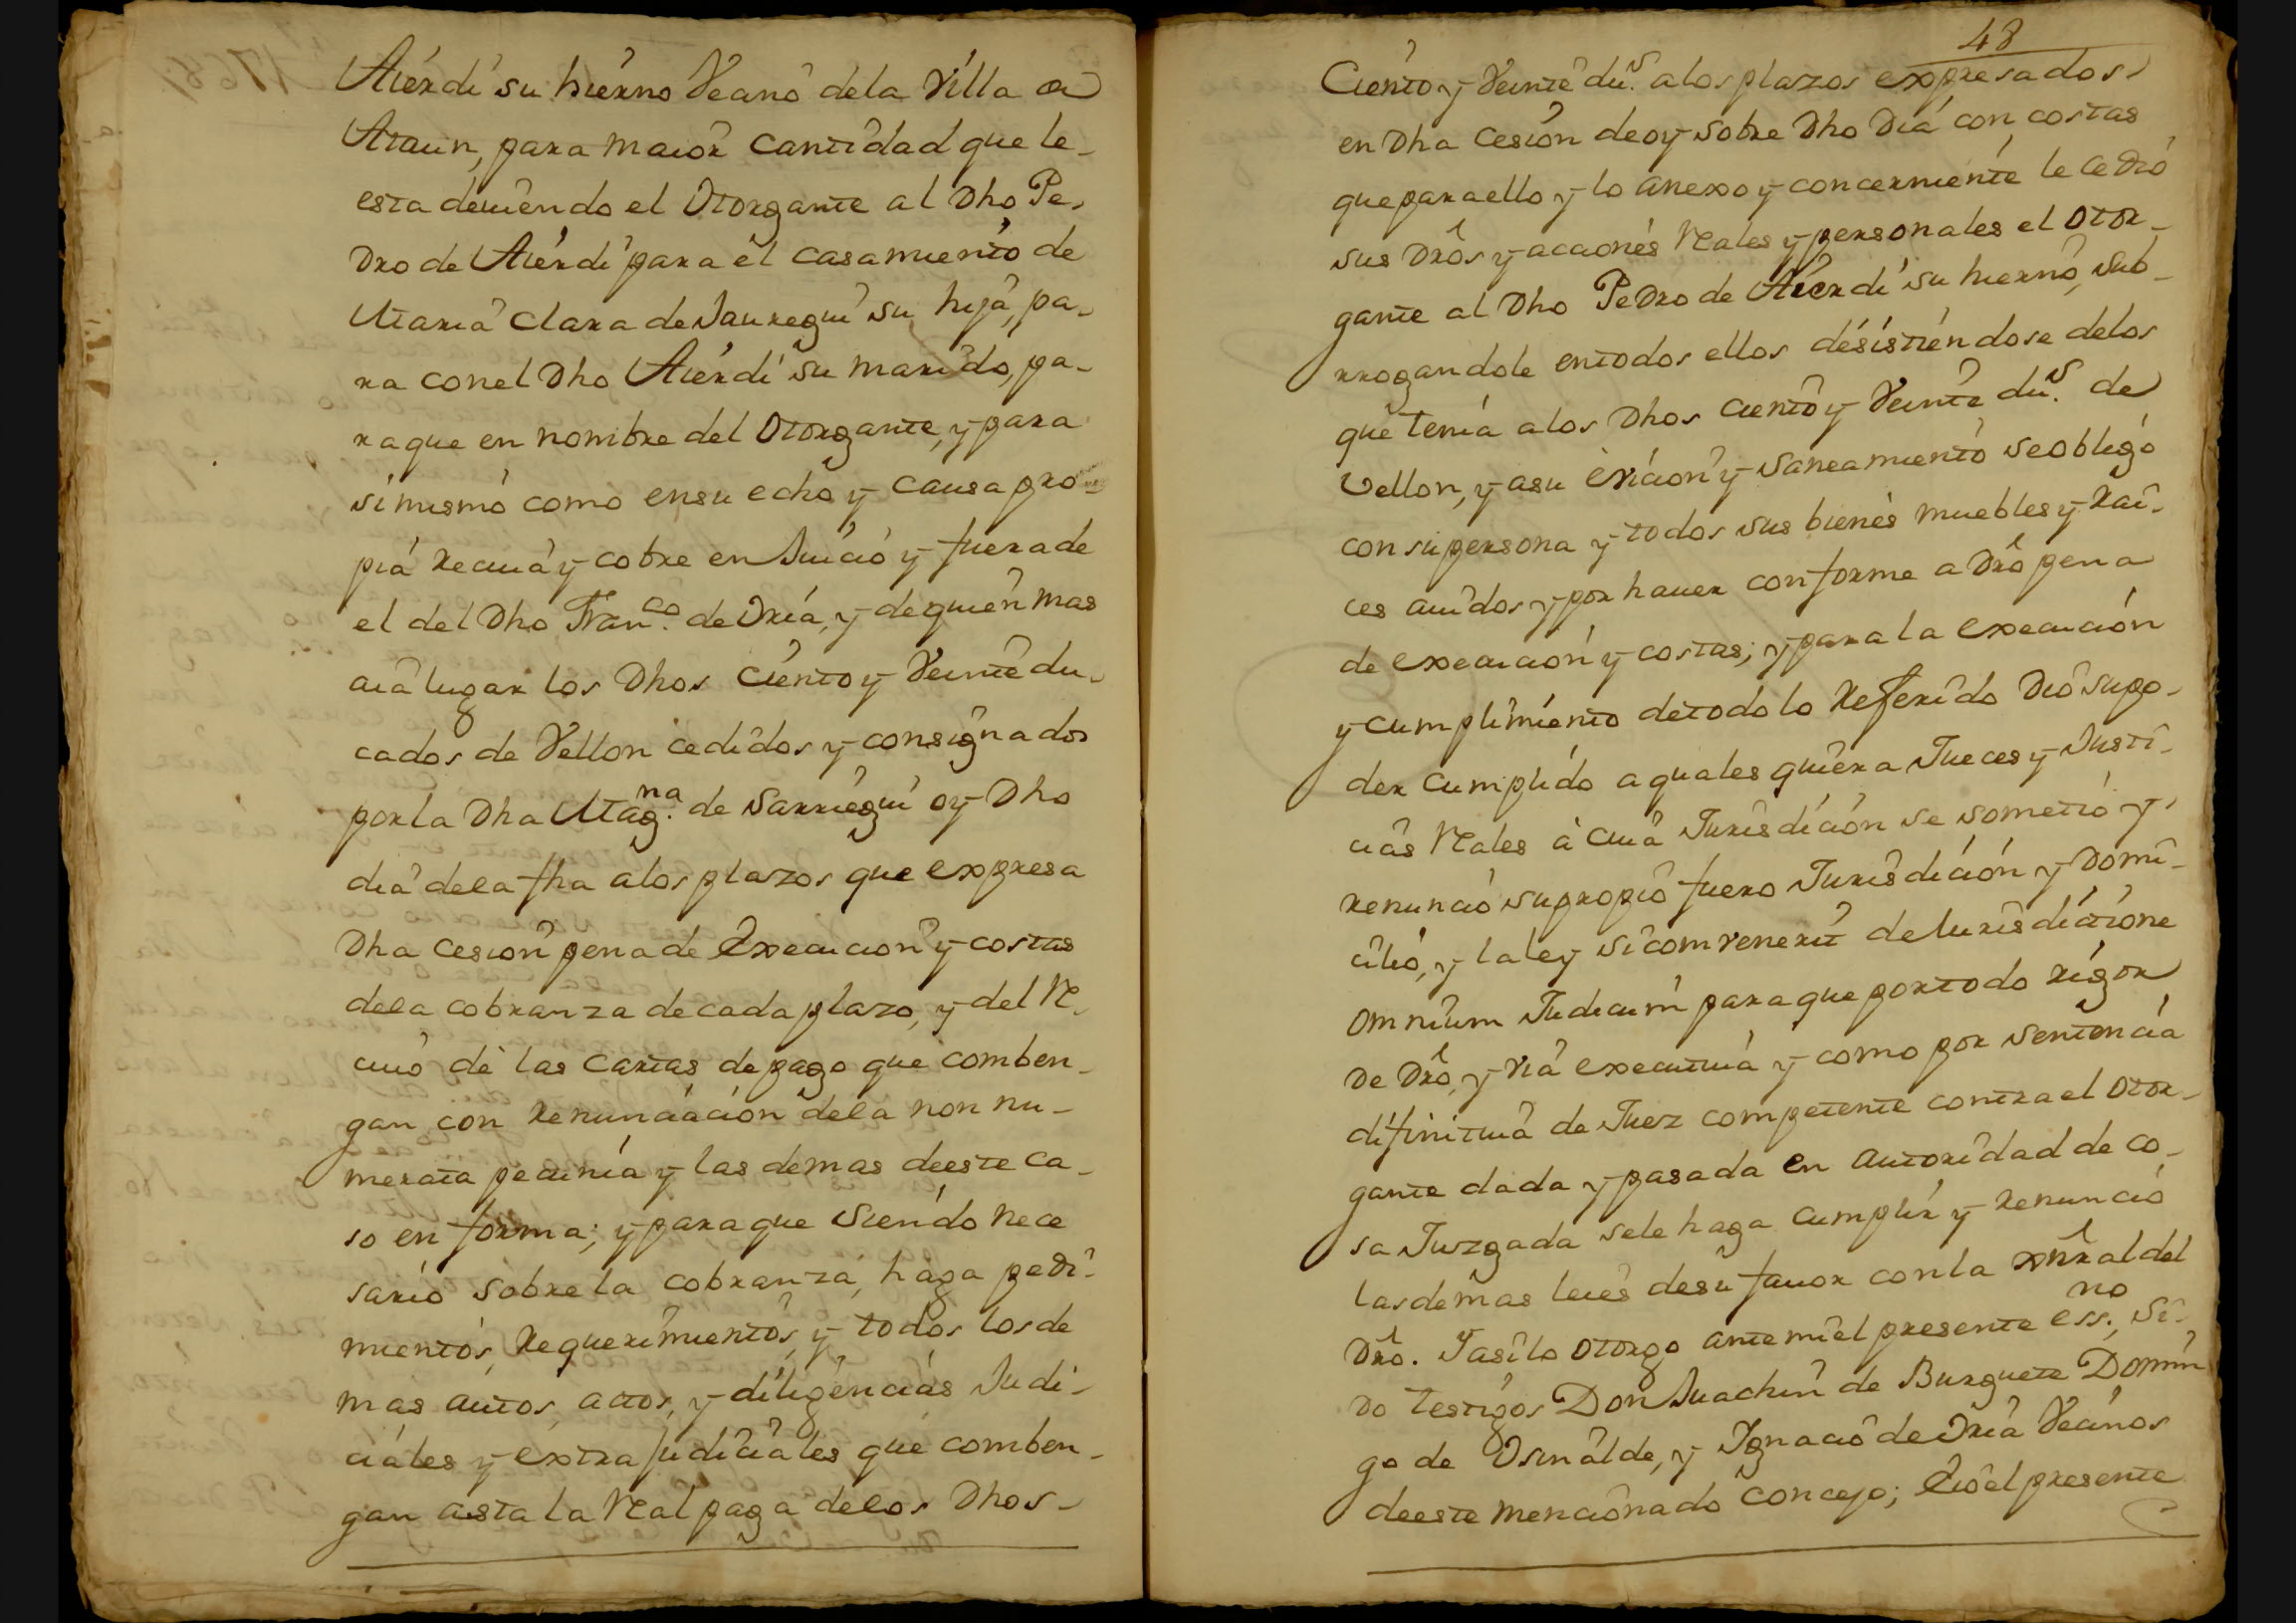 Aierdi su hierno Vecano dela Villa a
Ataun, para maior cantidad que le-
esta deuiendo el Otorgante al Dho Pe-
dro de Aierdi para el casamiento de
Maria Clara de Jauregui su hija, pa-
ra conel Dho Aierdi su marido, pa-
raque en nombre del Otorgante, y para
si mismo como ensu echo y causa pro-
pia reciua y cobre en Juicio y fuera de
el del Dho Fran.co de Oria, y de quien mas
aia lugar los Dhos ciento y Veinte du-
cados de Vellon cedidos y consignados
porla Dha Mag.na de Sarriegui oy Dho
dia dela fha alos plazos que expresa
Dha cesion pena de execucion y costas
dela cobranza de cada plazo, y del re-
ciuo dè las cartas de pago que comben-
gan con renunciacion dela non nu-
merata pecunia y las demas deeste ca-
so en forma; y paraque siendo nece
sario sobre la cobranza, haga pedi-
mientos, requerimientos, y todos los de
mas autos, actos, y diligencias Judi-
ciales y extra judiciales que comben-
gan asta la real paga delos Dhos-
48
Ciento y Veinte du.s alos plazos expresados
en Dha cesion de oy sobre Dho Dia con costas
que para ello y lo anexo y concerniente le cedio
sus Dros y acciones reales y personales el Otor-
gante al Dho Pedro de Aierdi su hierno, sub-
rrogandole entodos ellos desistiendose delos
que tenia alos Dhos ciento y Veinte du.s de
Vellon, y asu eviccion y saneamiento se obligó
con su persona y todos sus bienes muebles y rai-
ces auidos y por hauer conforme a Dro pena
de execucion y costas; y para la execucion
y cumplimiento detodo lo referido Dio su po-
der cumplido a quales quiera Jueces y Justi-
cias reales à cuia Jurisdicion se sometio y
renunció su propio fuero Jurisdicion y Domi-
cilio, y la ley si comvenerit de Iurisdictione
omnium Judicum para que por todo rigor
de Dro, y via executiua y como por sentencia
difinitiua de Juez competente contra el Otor-
gante dada y pasada en autoridad de co-
sa Juzgada se le haga cumplir y renunció
las demas leies desu fauor con la xnral del
Dro. Y asi lo otorgo ante mi el presente ess.no, Si-
do testigos Don Juachin de Burguete Domin
go de Osinalde, y Ignacio de Oria Vecinos
deeste mencionado concejo; eio el presente